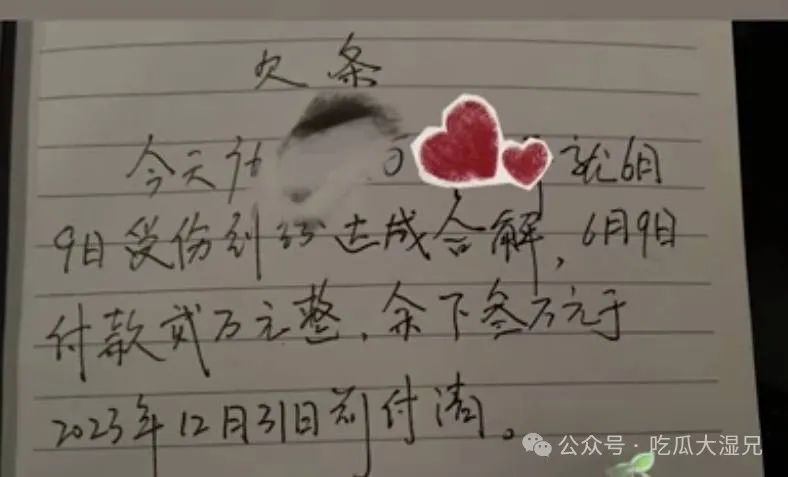 欠条
今天 就6月
9日受伤纠纷达成合解，6月9日
付款贰万元整，余下叁万元于
2023年12月31日前付清。
公众号·吃瓜大湿兄